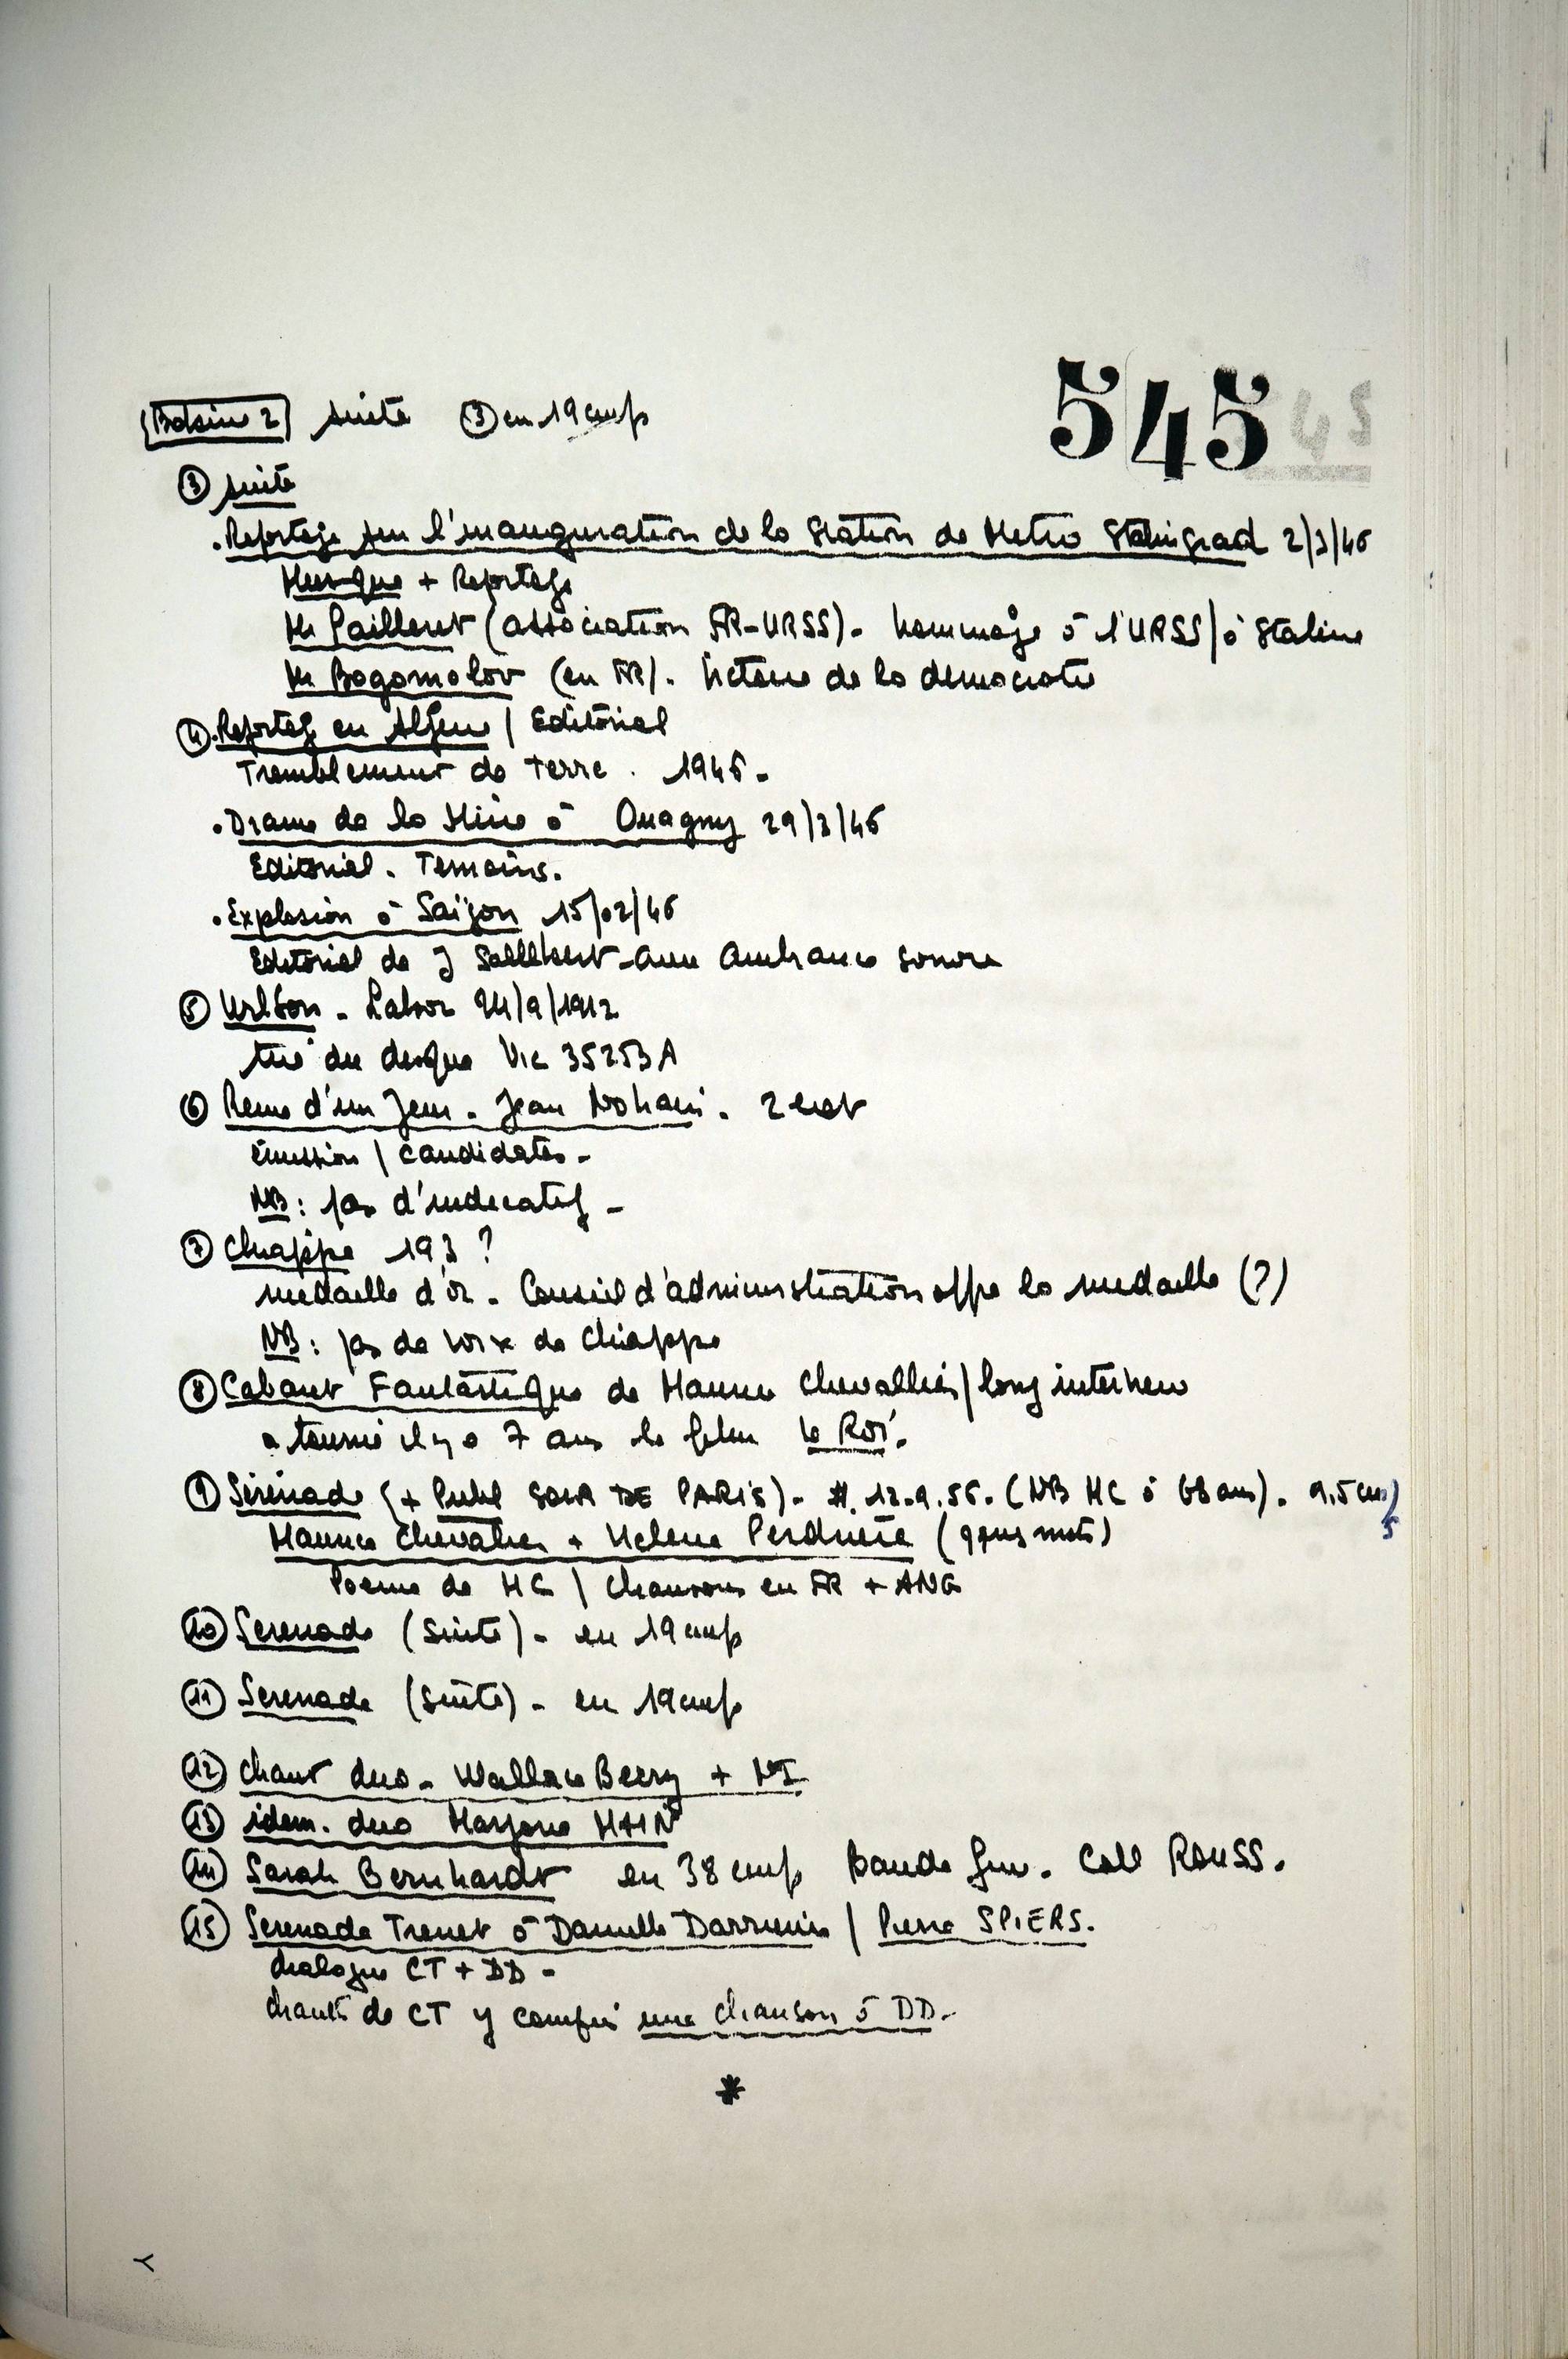 545
2 suite ③ en 19 cm/s
③ suite
. Reportage sur l'inauguration de la Station de Metro Stalingrad 2/3/46
Musique + Reportage
Mr Pailleret (association FR-URSS). hommage à l'URSS/à Staline
Mr Bogomolov (en FR). Victoire de la democratie
④. Reportage en Algerie / Editorial
Tremblement de terre. 1946.
. Drame de la Mine à 29/3/46
Editorial. Temoins.
. Explosion à Saigon 15/02/46
Editorial de J Sallebert - Ambiance sonore
⑤ 24/9/1912
tiré du disque Vic 35253 A
⑥ Reine d'un Jour. Jean Nohain. 2 ext
émission / candidates -
NB: pas d'indicatif -
⑦ Chiappe 193 ?
medaille d'or. Conseil d'administration offre la medaille (?)
NB: pas de voix de Chiappe
⑧ Cabaret Fantastique de Maurice Chevallier / long interview
a tourné il y a 7 ans le film le Roi.
⑨ Sérénade (+ Publ SOIR DE PARIS). 12.9.56. (NB MC à 68 ans). 9,5 cm/s
Maurice Chevalier + Helene Perdrière (qques mots)
Poeme de MC / Chansons en FR + ANG
⑩ Serenade (Suite) - en 19 cm/s
⑪ Serenade (Suite) - en 19 cm/s
⑫ Chant duo - Wallace Beery + NI
⑬ idem. duo Marjorie MAIN
⑭ Sarah Bernhardt en 38 cm/s Bande Coll ROUSS.
⑮ Serenade Trenet à Danielle Darrieux / Pierre SPIERS.
dialogue CT + DD -
chants de CT y compris une chanson à DD.
*